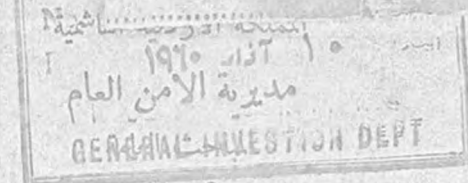 المملكة الاردنية الهاشمية
١٠ آذار ١٩٦٠
مديرية الامن العام
GENERAL INVESTION DEPT